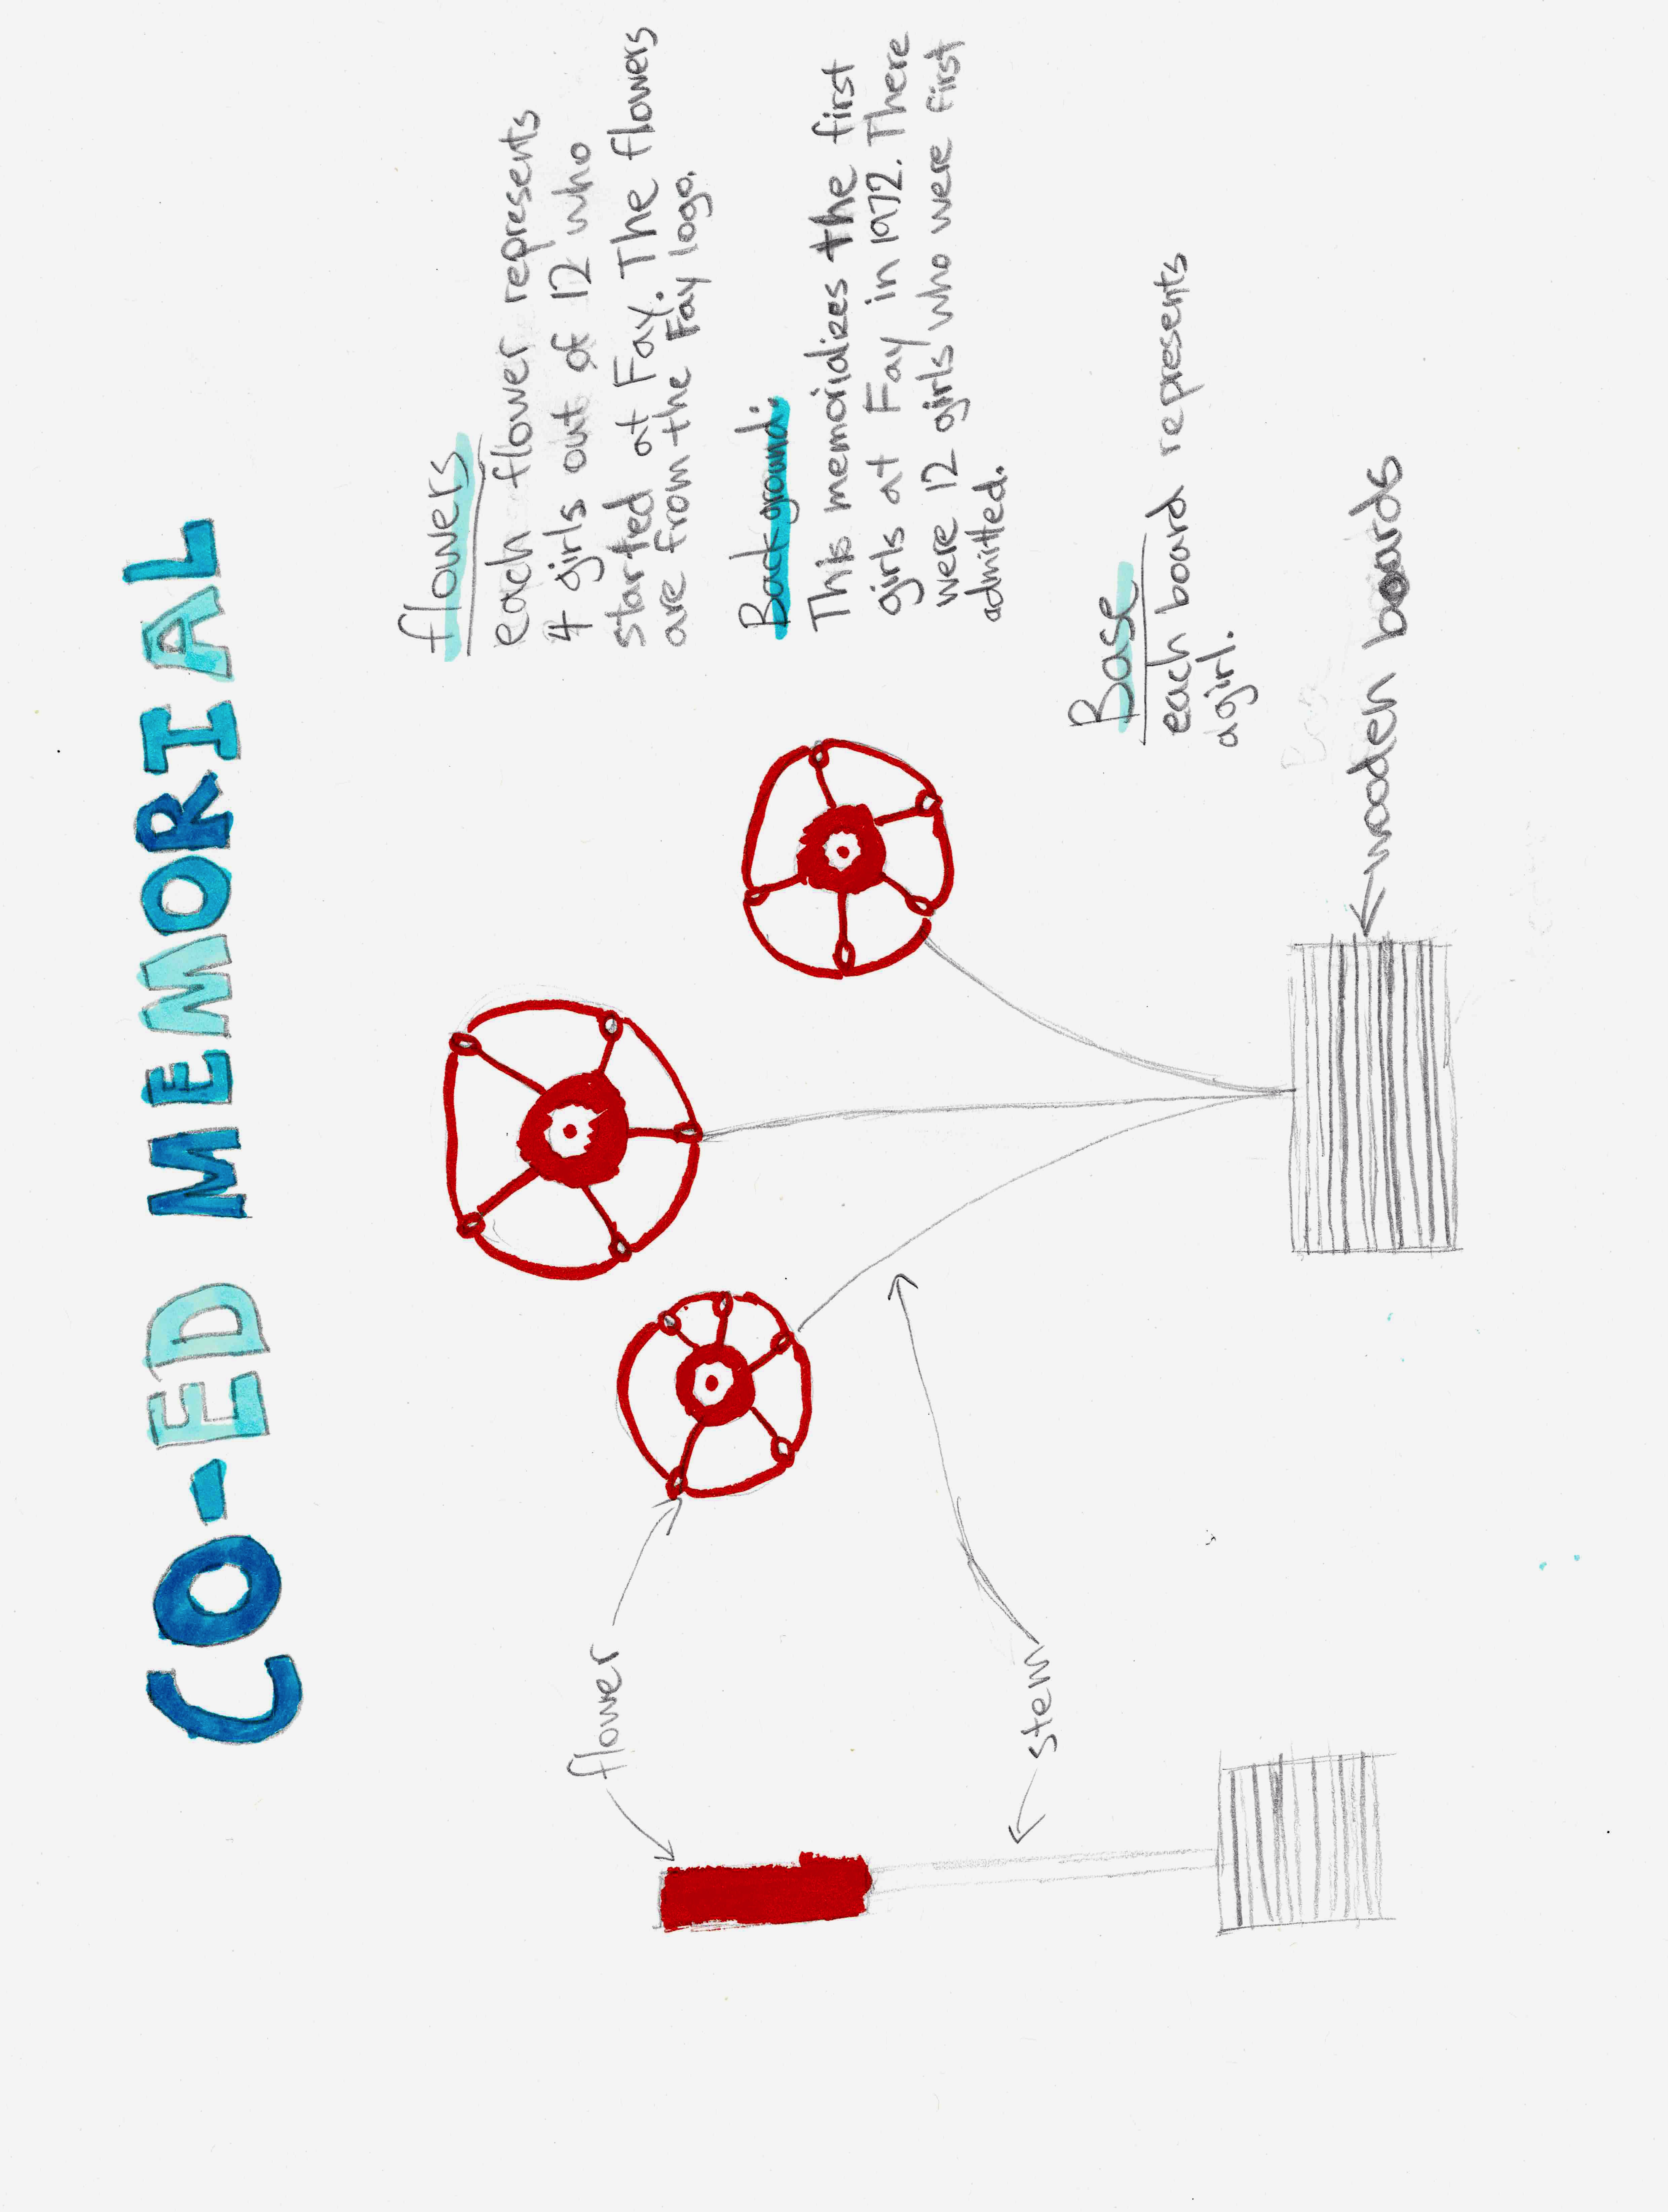 CO-ED MEMORIAL
flowers
each flower represents
4 girls out of 12 who
started at Fay. The flowers
are from the Fay logo.
flower
Background:
This memorializes the first
girls at Fay in 1972. There
were 12 girls who were first
admitted.
stem
Base
each board represents
a girl.
wooden boards